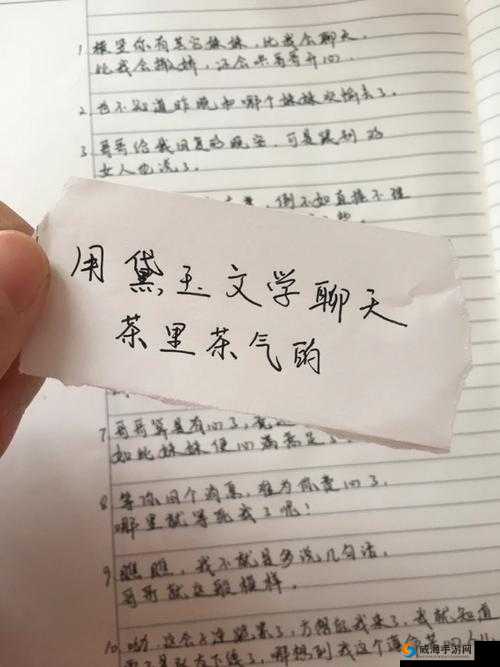 1. 想是你有其它妹妹,比我会聊天,
比我会撒娇,还会哄哥哥开心.
2. 也不知道昨晚和哪个妹妹欢愉去了.
3. 哥哥给我回复的晚安,可是跟别的
女人也说了.
倒不如直接不理
用黛玉文学聊天
茶里茶气的
7. 哥哥算是有心了,
如此妹妹便心满意足
8. 等你回个消息,难为你费心了,
哪里就等死我了呢!
9. 瞧瞧,我不就是多说几句话,
哥哥就这般模样.
10. 哟,这会子
我就知道
威海手游网